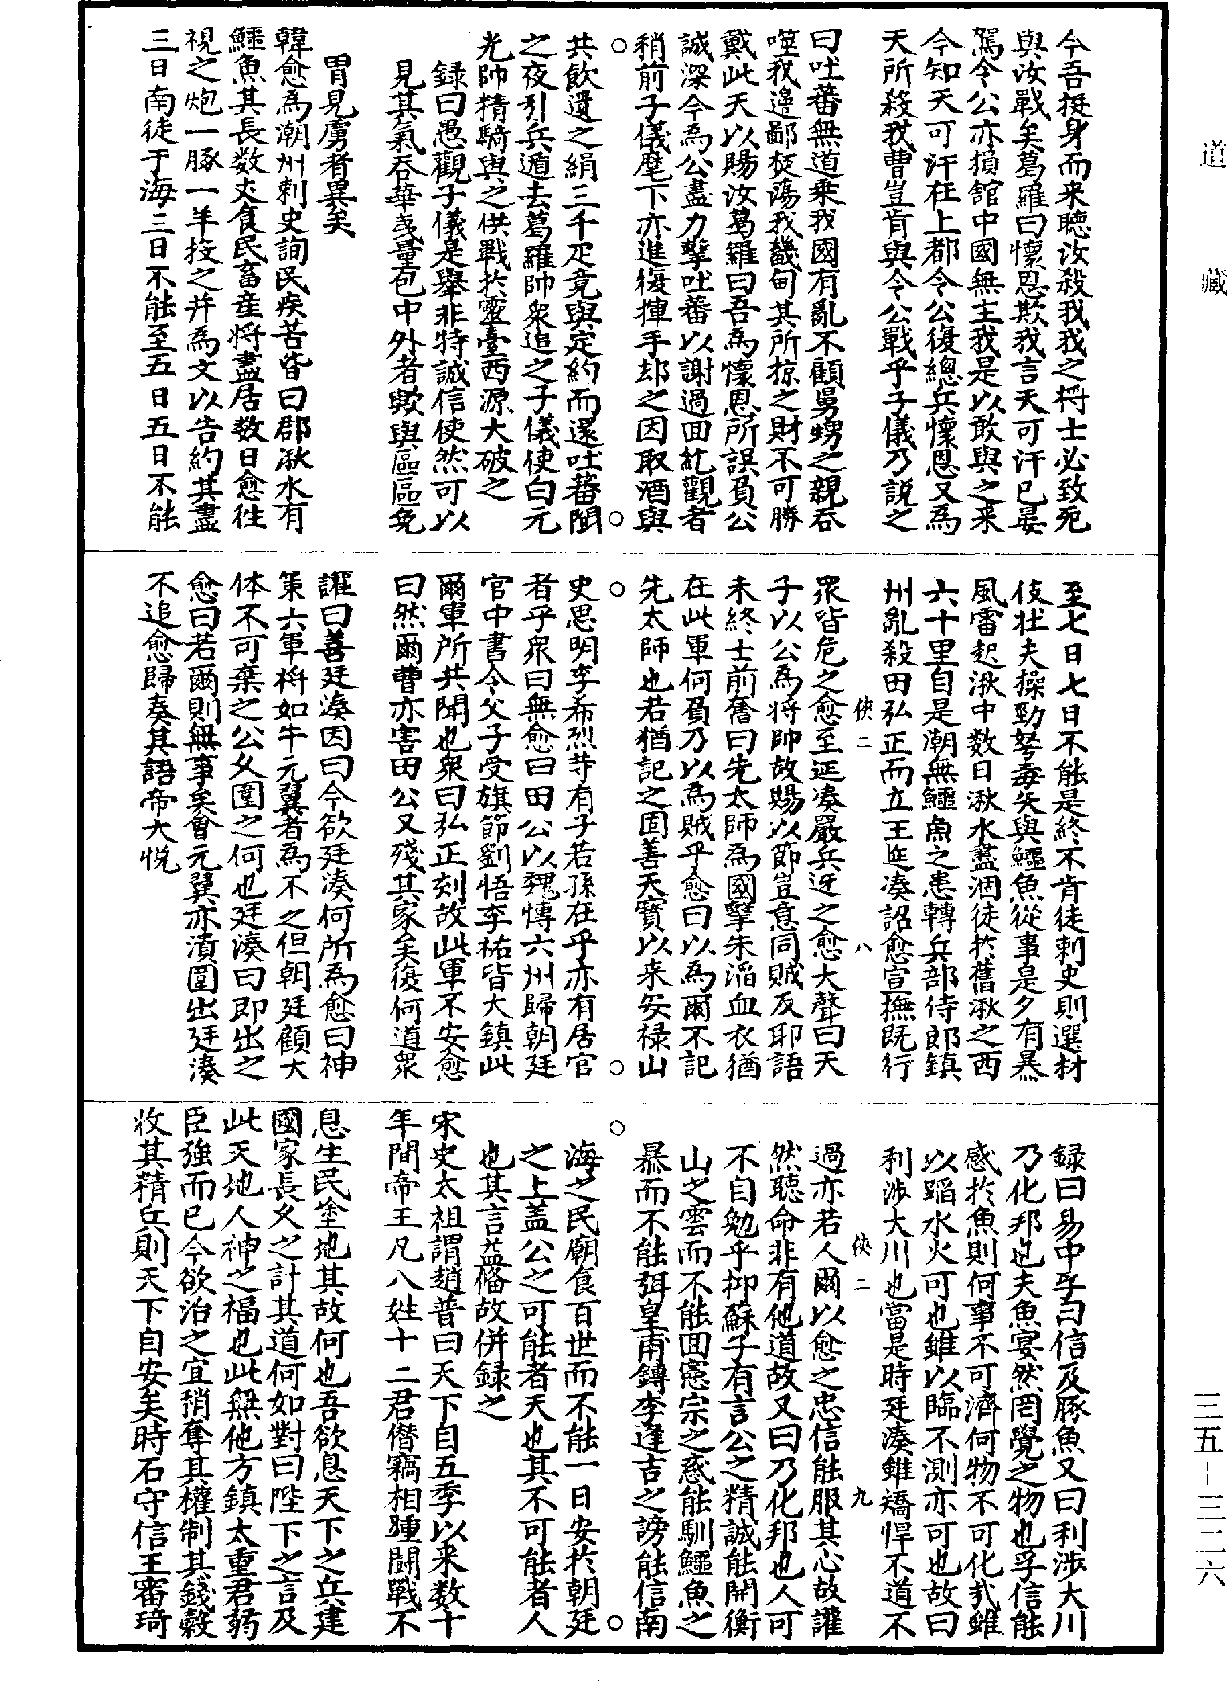 道藏
今吾挺身而来聽汝殺我我之将士必致死
與汝戰矣葛羅曰懷恩欺我言天可汗已晏
駕令公亦損館中國無主我是以敢與之来
今知天可汗在上都令公復總兵懷恩又為
天所殺我曹豈肯與令公戰乎子儀乃說之
曰吐蕃無道乗我國有亂不顧舅甥之親吞
噬我邊鄙焚蕩我畿甸其所掠之財不可勝
戴此天以賜汝葛羅曰吾為懷恩所誤負公
誠深今為公盡力擊吐蕃以謝過回紇觀者
稍前子儀麾下亦進復揮手却之因取酒與
共飲遺之絹三千疋竟與定約而還吐蕃聞
之夜引兵遁去葛羅帥衆追之子儀使白元
光帥精騎與之俱戰於靈臺西源大破之
録曰愚觀子儀是舉非特誠信使然可以
見其氣吞華戎量包中外者歟與區區免
冑見虜者異矣
韓愈為潮州刺史詢民疾苦皆曰郡湫水有
鱷魚其長数丈食民畜産将盡居数日愈往
視之炮一豚一羊投之并為文以告約其盡
三日南徒于海三日不能至五日五日不能
至七日七日不能是終不肯徒刺史則選材
伎壮夫操勁弩毒矢與鱷魚從事是夕有暴
風雷起湫中数日湫水盡涸徒於舊湫之西
六十里自是潮無鱷魚之患轉兵部侍郎鎮
州亂殺田弘正而立王廷凑詔愈宣撫既行
俠二 八
衆皆危之愈至廷凑嚴兵迓之愈大聲曰天
子以公為将帥故賜以節豈意同賊反耶語
未終士前奮曰先太師為國擊朱滔血衣猶
在此軍何負乃以為賊乎愈曰以為爾不記
先太師也若猶記之固善天寳以来安禄山
史思明李希烈等有子若孫在乎亦有居官
者乎衆曰無愈曰田公以魏慱六州歸朝廷
官中書令父子受旗節劉悟李祐皆大鎮此
爾軍所共聞也衆曰弘正刻故此軍不安愈
曰然爾曹亦害田公又殘其家矣復何道衆
讙曰善廷湊因曰今欲廷湊何所為愈曰神
策六軍将如牛元翼者為不乏但朝廷顧大
体不可棄之公乆圍之何也廷湊曰即出之
愈曰若爾則無事矣會元翼亦潰圍出廷湊
不追愈歸奏其語帝大悦
録曰易中孚曰信及豚魚又曰利渉大川
乃化邦也夫魚寔然罔覺之物也孚信能
感於魚則何事不可濟何物不可化㦲雖
以蹈水火可也雖以臨不測亦可也故曰
利渉大川也當是時廷湊雖驕悍不道不
俠二 九
過亦若人爾以愈之忠信能服其心故讙
然聽命非有他道故又曰乃化邦也人可
不自勉乎抑蘇子有言公之精誠能開衡
山之雲而不能回憲宗之惑能馴鱷魚之
暴而不能弭皇甫鎛李逢吉之謗能信南
海之民廟食百世而不能一日安於朝廷
之上盖公之可能者天也其不可能者人
也其言益偹故併録之
宋史太祖謂趙普曰天下自五季以来数十
年間帝王凡八姓十二君僭竊相踵闘戰不
息生民塗地其故何也吾欲息天下之兵建
國家長乆之計其道何如對曰陛下之言及
此天地人神之福也此無他方鎮太重君弱
臣強而已今欲治之宜稍奪其權制其錢穀
收其精兵則天下自安矣時石守信王審琦
三五－三二六